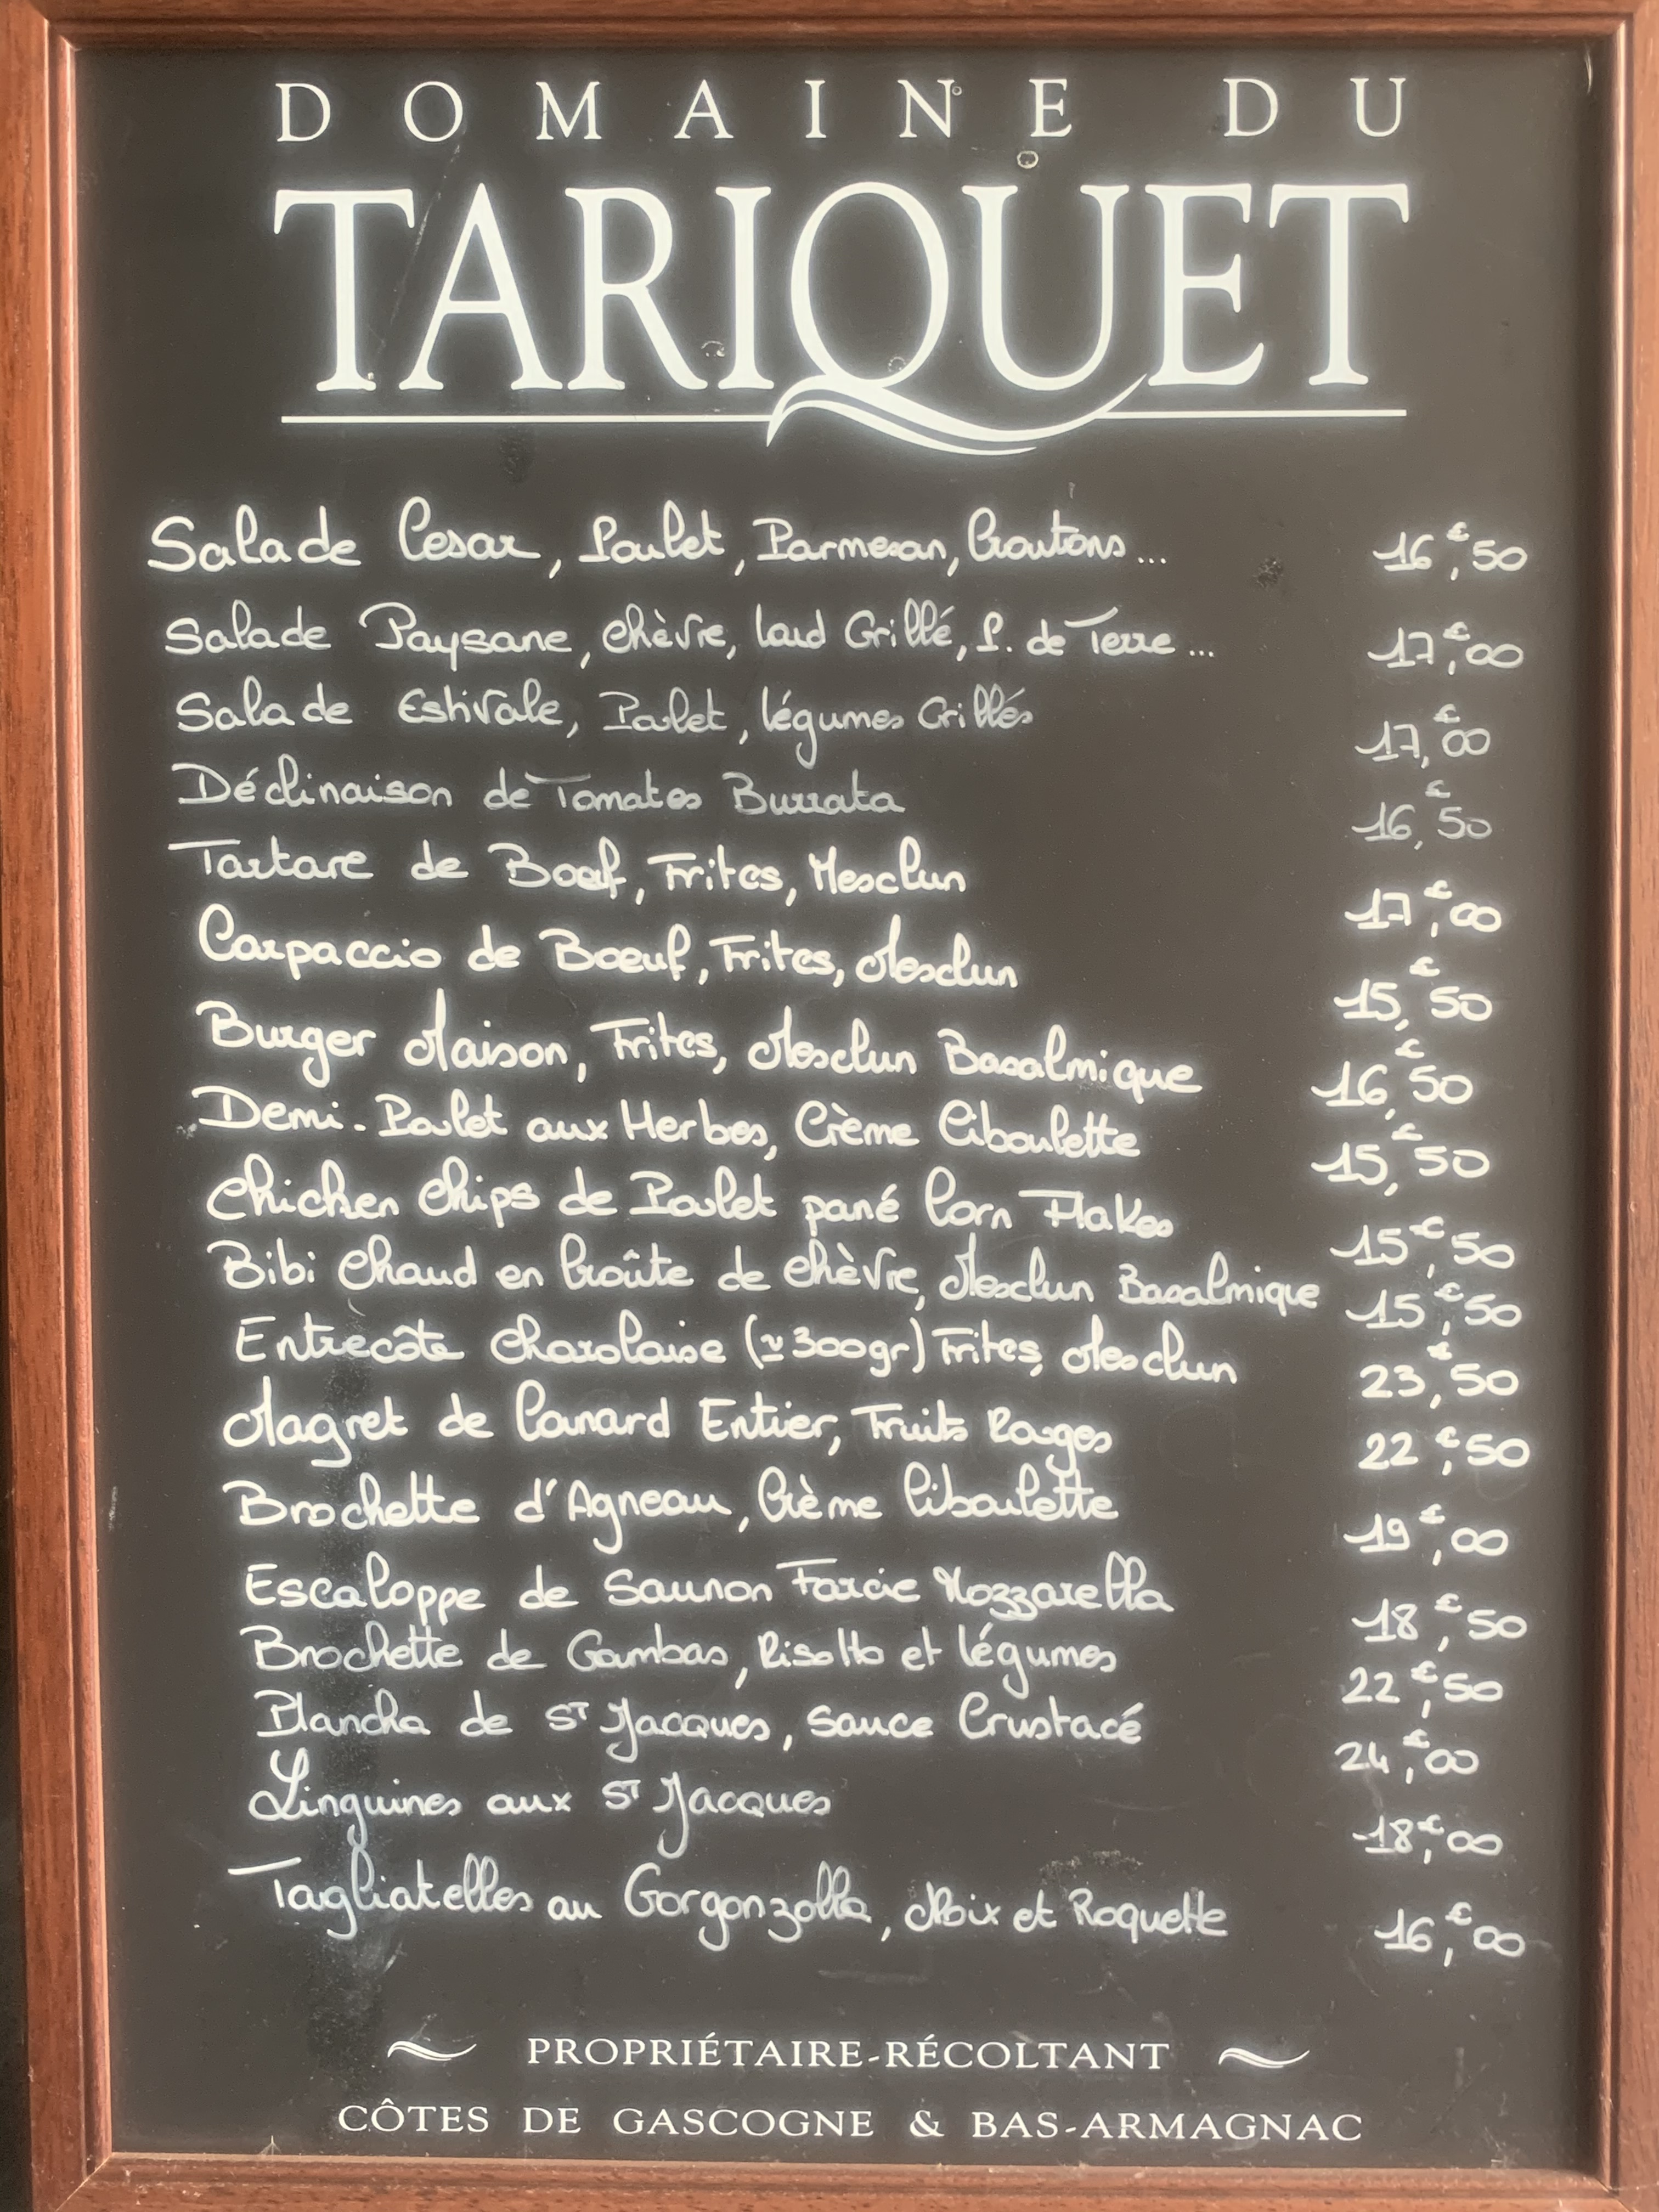 DOMAINE DU
TARIQUET
Salade Cesar, Poulet, Parmesan, Croutons... 16,€50
Salade Paysane, Chèvre, lard Grillé, P. de Terre... 17,€00
Salade Estivale, Poulet, légumes Grillés 17,€00
Déclinaison de Tomates Burrata 16,€50
Tartare de Boeuf, Frites, Mesclun 17,€00
Carpaccio de Boeuf, Frites, Mesclun 15,€50
Burger Maison, Frites, Mesclun Basalmique 16,€50
Demi-Poulet aux Herbes, Crème Ciboulette 15,€50
Chicken Chips de Poulet pané Corn Flakes 15,€50
Bibi Chaud en Croûte de Chèvre, Mesclun Basalmique 15,€50
Entrecôte Charolaise (≃300gr) Frites, Mesclun 23,€50
Magret de Canard Entier, Fruits Rouges 22,€50
Brochette d'Agneau, Crème Ciboulette 19,€00
Escaloppe de Saumon Farcie Mozzarella 18,€50
Brochette de Gambas, Risotto et légumes 22,€50
Plancha de ST Jacques, Sauce Crustacé 24,€00
Linguines aux ST Jacques 18,€00
Tagliatelles au Gorgonzolla, Noix et Roquette 16,€00
PROPRIÉTAIRE-RÉCOLTANT
CÔTES DE GASCOGNE & BAS-ARMAGNAC